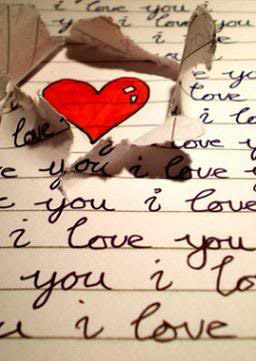 i love you i
i love you
i love
you
love
i love
love
love y
you i love
you i love
i love you
you i lo
i love